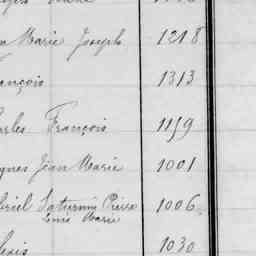 Marie Joseph 1218
ançois 1313
arles François 1159
gnes Jean Marie 1001
briel Saturnin Pierre 1006
Louis Marie
lexis 1030